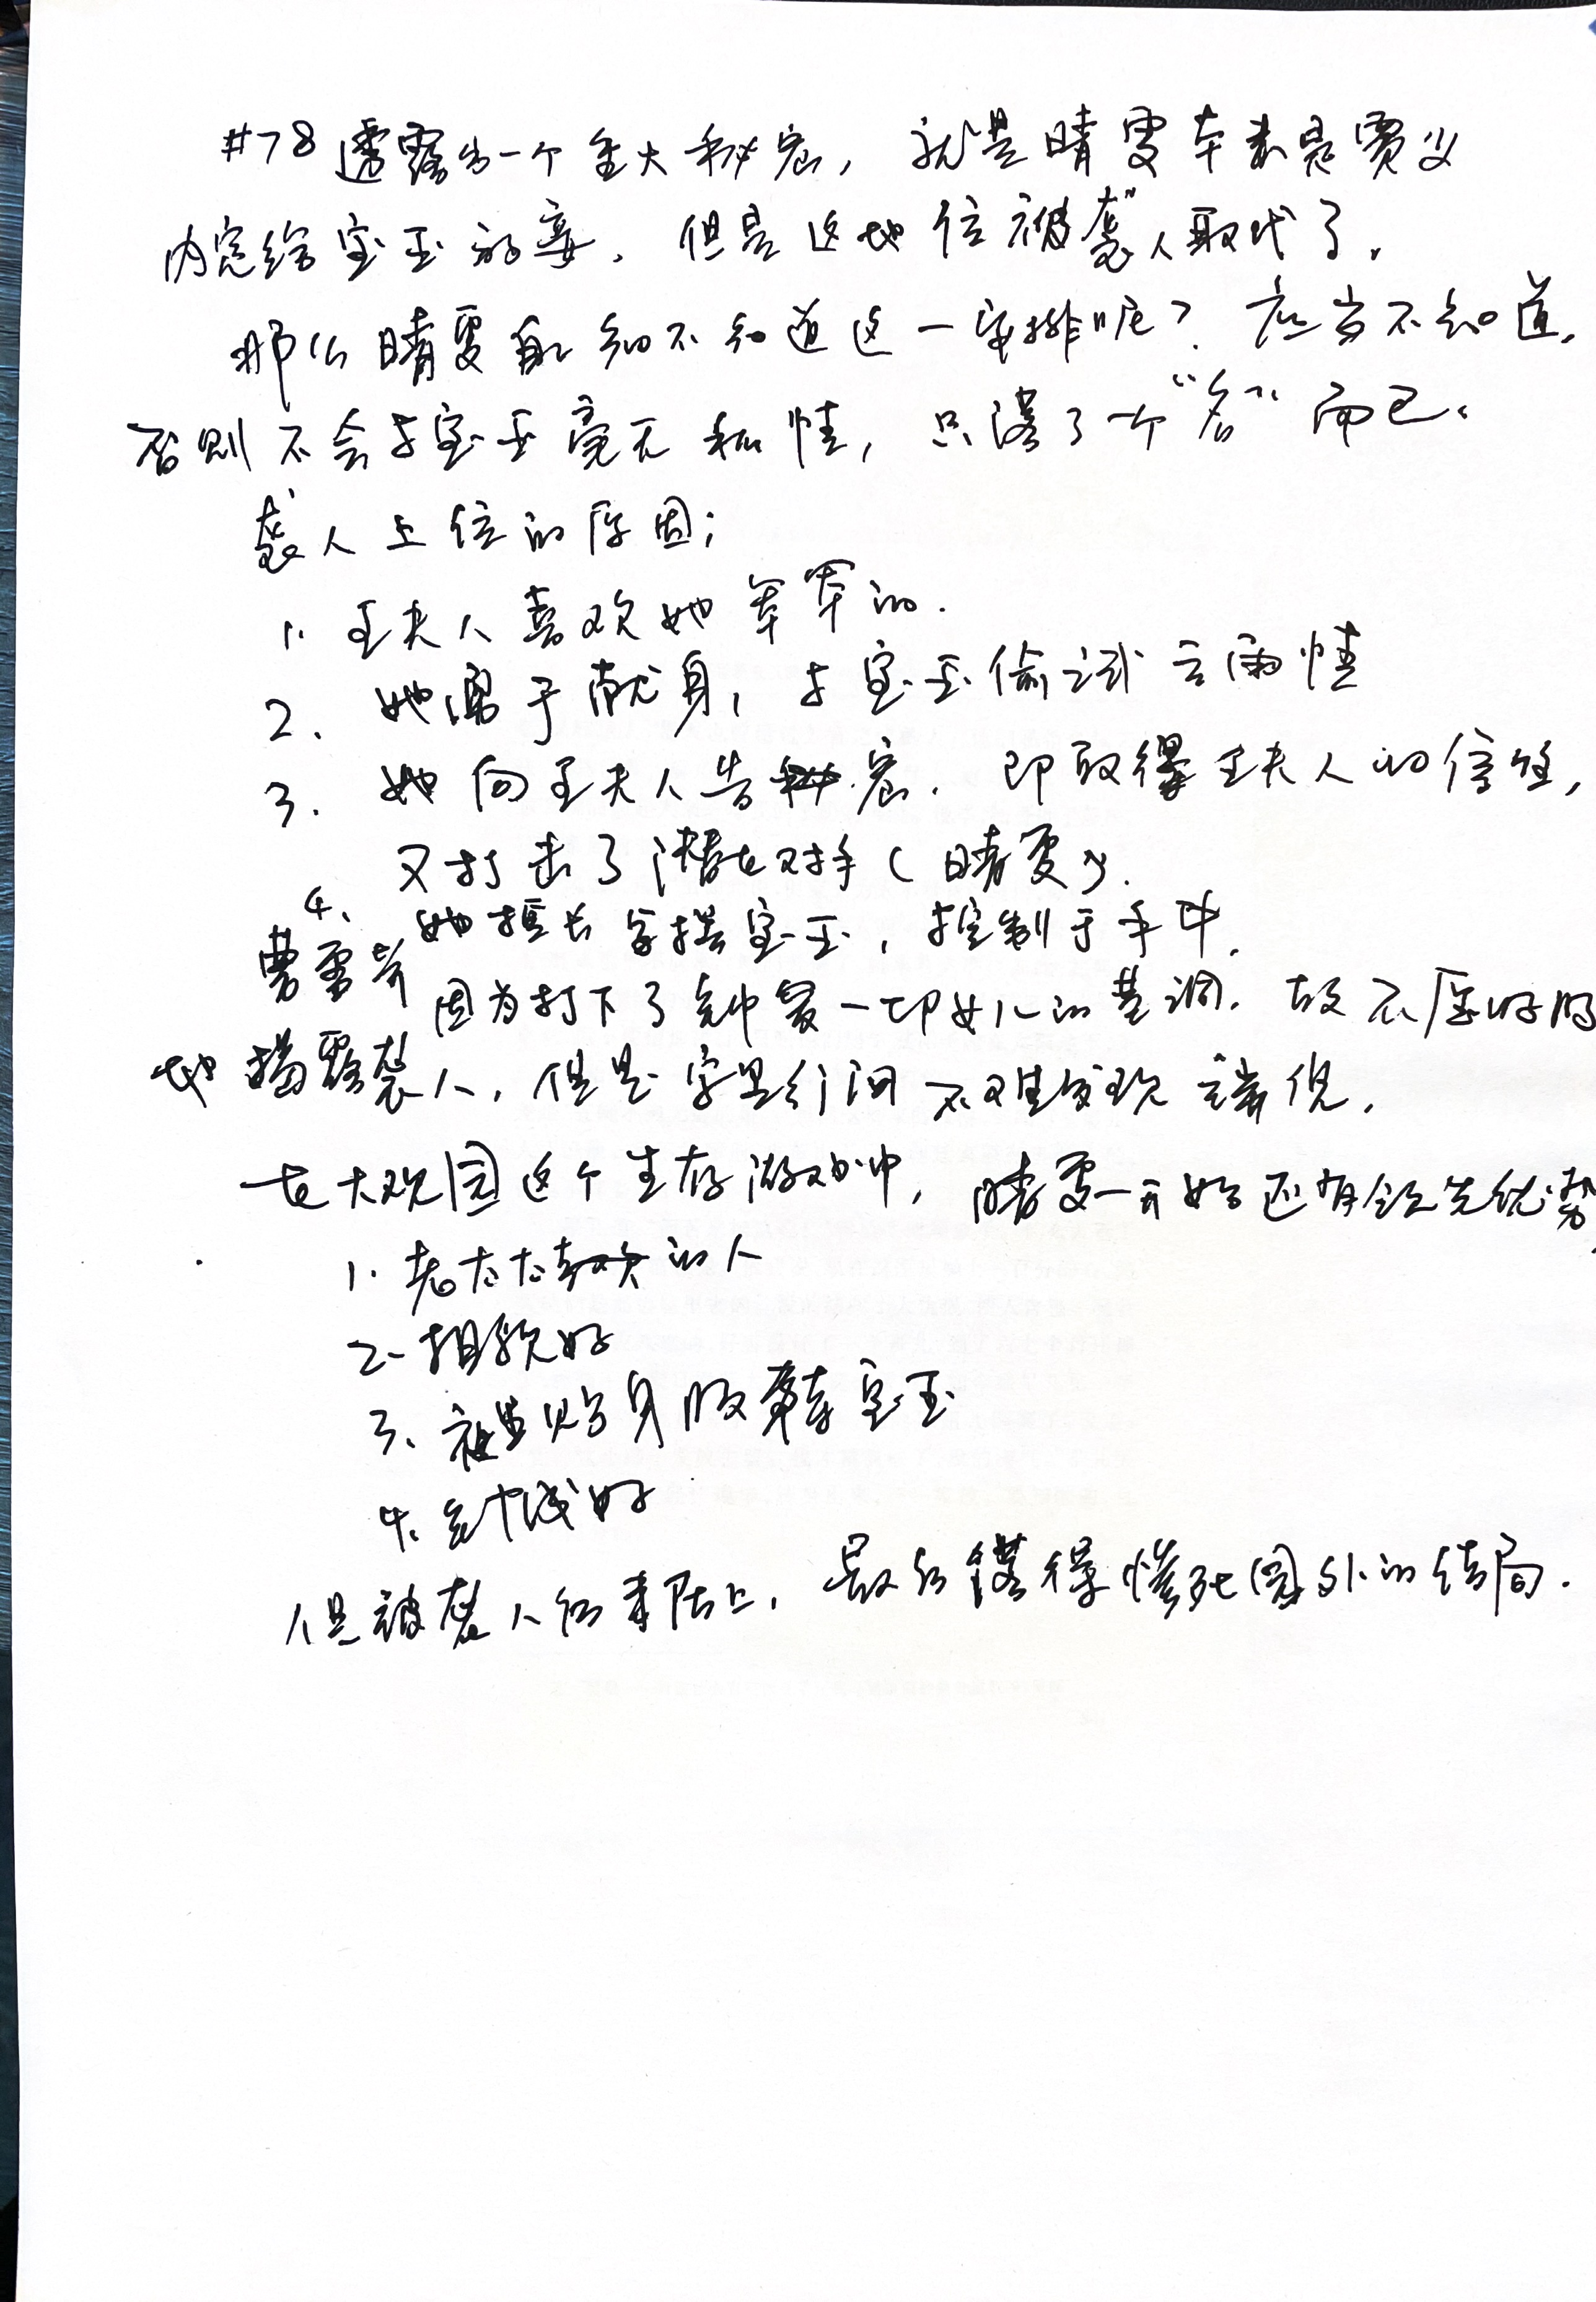 #78 透露出一个重大秘密，就是晴雯本来是贾父
内定给宝玉的妾，但是这地位被袭人取代了。
那么晴雯自己知不知道这一安排呢？应当不知道，
否则不会与宝玉毫无私情，只落了个“名”而已。
袭人上位的原因；
1. 王夫人喜欢她笨笨的.
2. 她勇于献身，与宝玉偷试云雨情
3. 她向王夫人告秘密，即取得王夫人的信任，
又打击了潜在对手（晴雯）.
4. 她擅长掌握宝玉，控制于手中.
曹雪芹因为打下了钟爱一切女儿的基调，故不
地揭露袭人，但是字里行间不难发现端倪.
在大观园这个生存游戏中，晴雯一开始还有领先优势
1. 老太太喜欢的人
2. 相貌好
3. 被当贴身服侍宝玉
4. 针线好
但被袭人后来居上，最后落得惨死园外的结局.